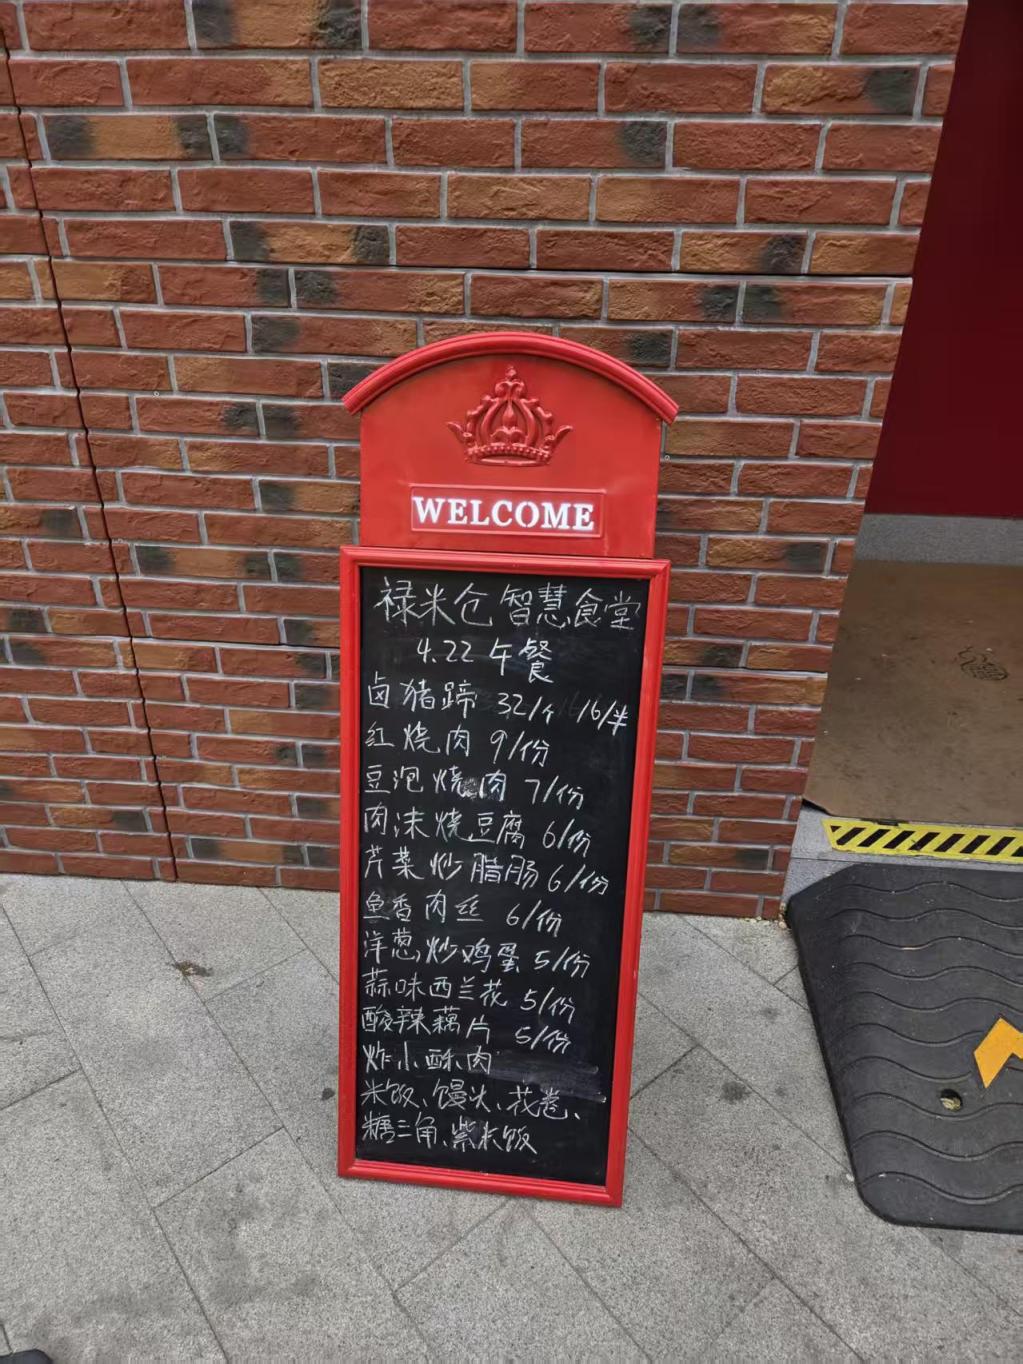 WELCOME
禄米仓智慧食堂
4.22 午餐
卤猪蹄 32/个 16/半
红烧肉 9/份
豆泡烧肉 7/份
肉沫烧豆腐 6/份
芹菜炒腊肠 6/份
鱼香肉丝 6/份
洋葱炒鸡蛋 5/份
蒜味西兰花 5/份
酸辣藕片 5/份
炸小酥肉
米饭、馒头、花卷、
糖三角、紫米饭